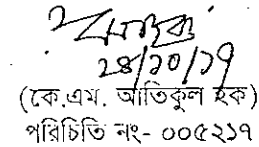 ২৪/১০/১৭
(কে,এম. আতিকুল হক)
পরিচিতি নং- ০০৫২১৭